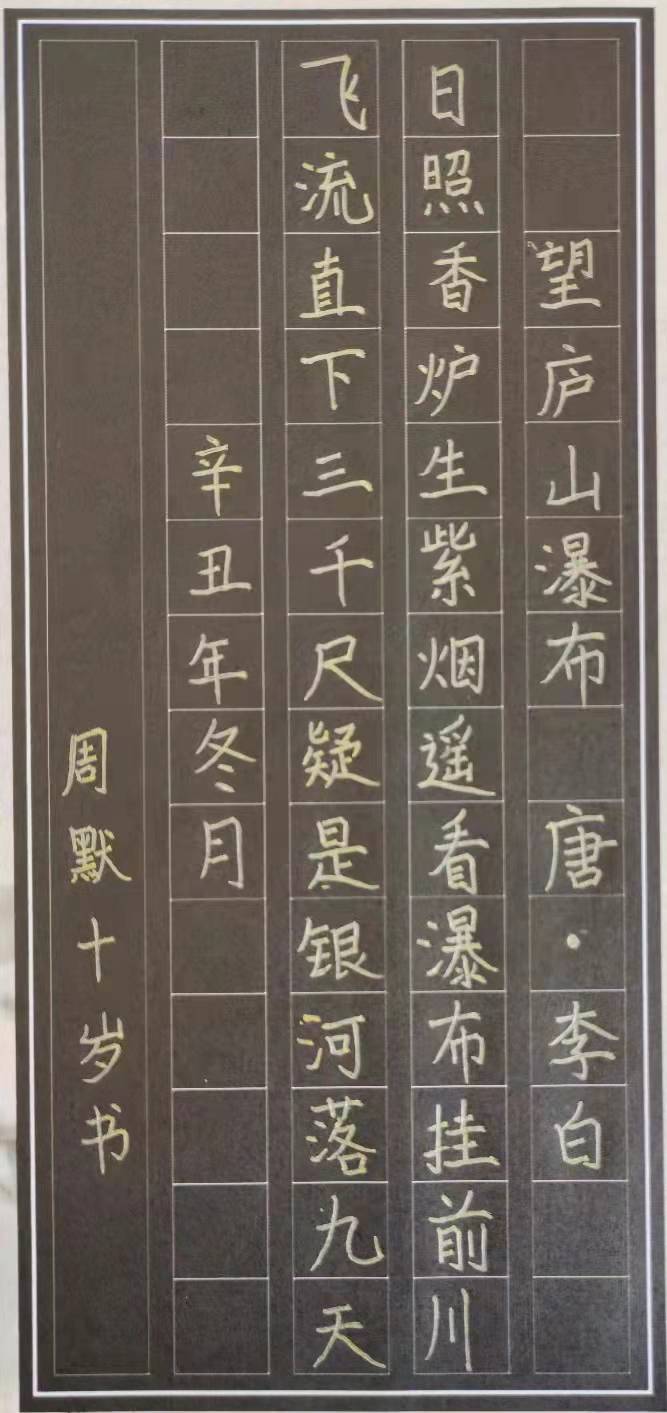 望庐山瀑布 唐·李白
日照香炉生紫烟遥看瀑布挂前川
飞流直下三千尺疑是银河落九天
辛丑年冬月
周默十岁书